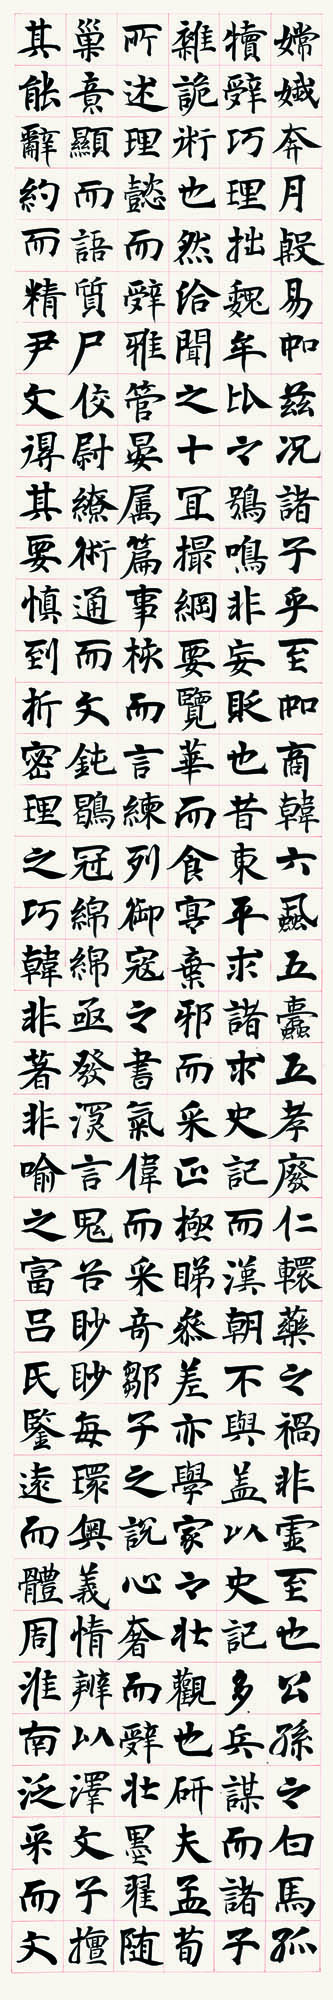 嫦娥奔月殷易如兹况諸子乎至如商韓六蝨五蠹五孝廢仁轘藥之禍非虛至也公孫之白馬孤
犢辭巧理拙魏牟比之鴞鳴非妄貶也昔東平求諸求史記而漢朝不與盖以史記多兵謀而諸子
雜詭術也然洽聞之士冝撮綱要覽華而食實棄邪而采正極睇參差亦學家之壯觀也研夫孟荀
所述理懿而辭雅管晏属篇事核而言練列御寇之書氣偉而采奇鄒子之説心奢而辭壯墨翟随
巢意顯而語質尸佼尉繚術通而文鈍鶡冠綿綿亟發深言鬼谷眇眇每環奧義情辨以澤文子擅
其能辭約而精尹文得其要慎到折密理之巧韓非著非喻之富呂氏鑒遠而體周淮南泛采而文